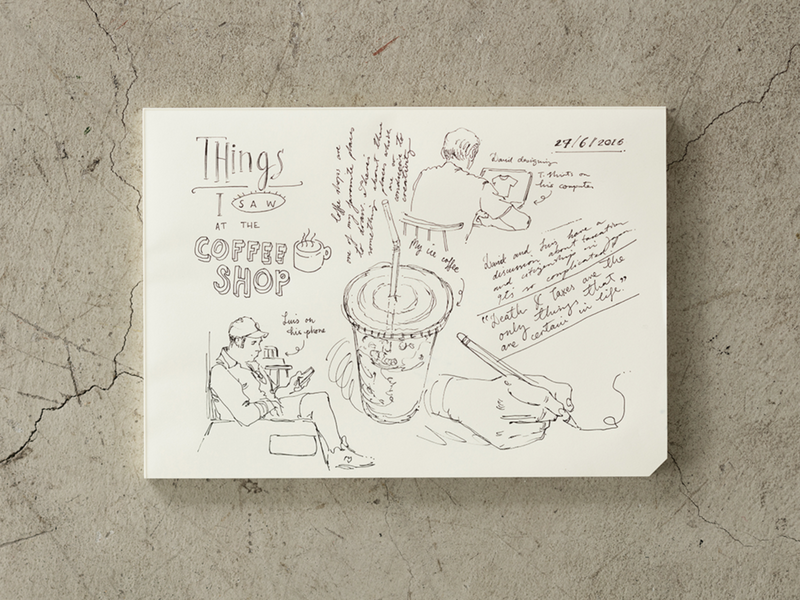 THings
I SAW
AT THE
COFFEE
SHOP
Coffee shops are
one of my favorite places
to draw. There's
something about these
places which
conducive to
creativity
David designing
T-Shirts on
his computer
27/6/2016
My ice coffee
David and Luis have a
discussion about taxation
and citizenship in
It's so complicated
"Death & Taxes are the
only things that
are certain in life."
Luis on
his phone